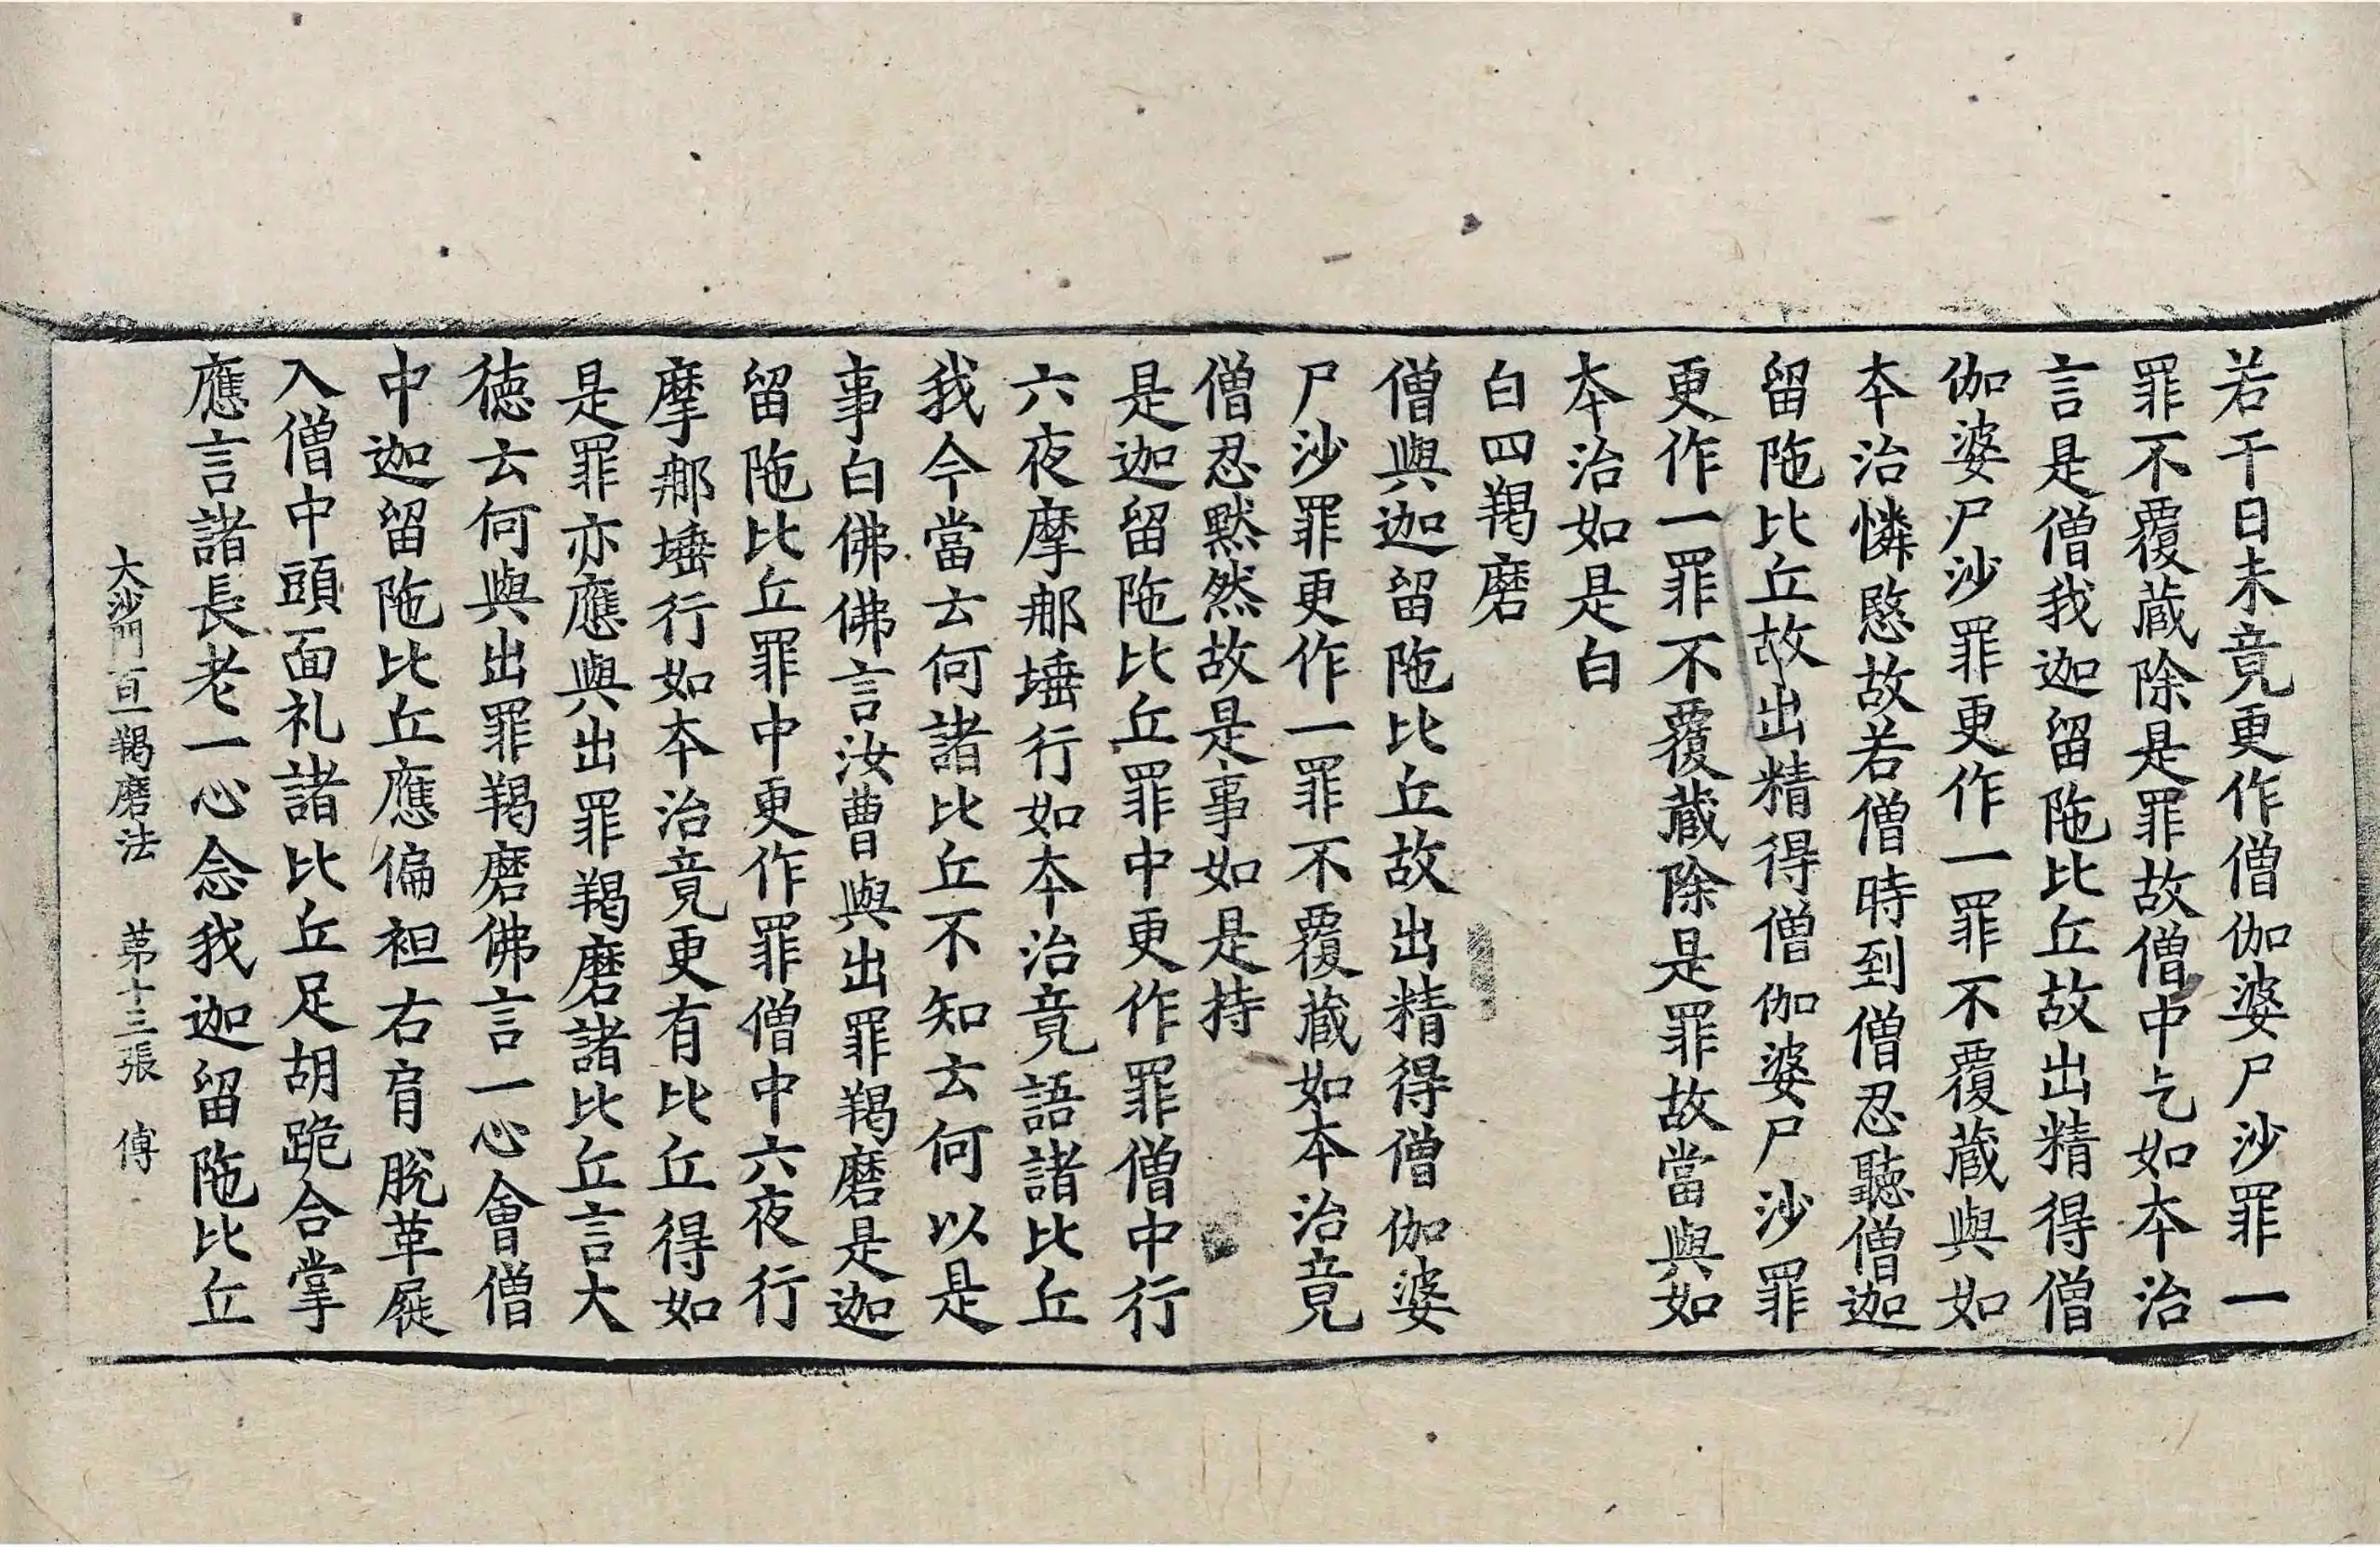 若干日未竟更作僧伽婆尸沙罪一
罪不覆蔵除是罪故僧中乞如夲治
言是僧我迦留陁比丘故出精得僧
伽婆尸沙罪更作一罪不覆蔵與如
夲治憐愍故若僧時到僧忍聽僧迦
留陁比丘故出精得僧伽婆尸沙罪
更作一罪不覆蔵除是罪故當與如
夲治如是白
白四羯磨
僧與迦留陁比丘故出精得僧伽婆
尸沙罪更作一罪不覆蔵如夲治竟
僧忍黙然故是事如是持
是迦留陁比丘罪中更作罪僧中行
六夜摩𨚗埵行如夲治竟語諸比丘
我今當云何諸比丘不知云何以是
事白佛佛言汝曹與出罪羯磨是迦
留陁比丘罪中更作罪僧中六夜行
摩𨚗埵行如夲治竟更有比丘得如
是罪亦應與出罪羯磨諸比丘言大
徳云何與出罪羯磨佛言一心會僧
中迦留陁比丘應偏袒右肩脫革屣
入僧中頭面礼諸比丘足胡跪合掌
應言諸長老一心念我迦留陁比丘
大沙門百一羯磨法　苐十三張　傅